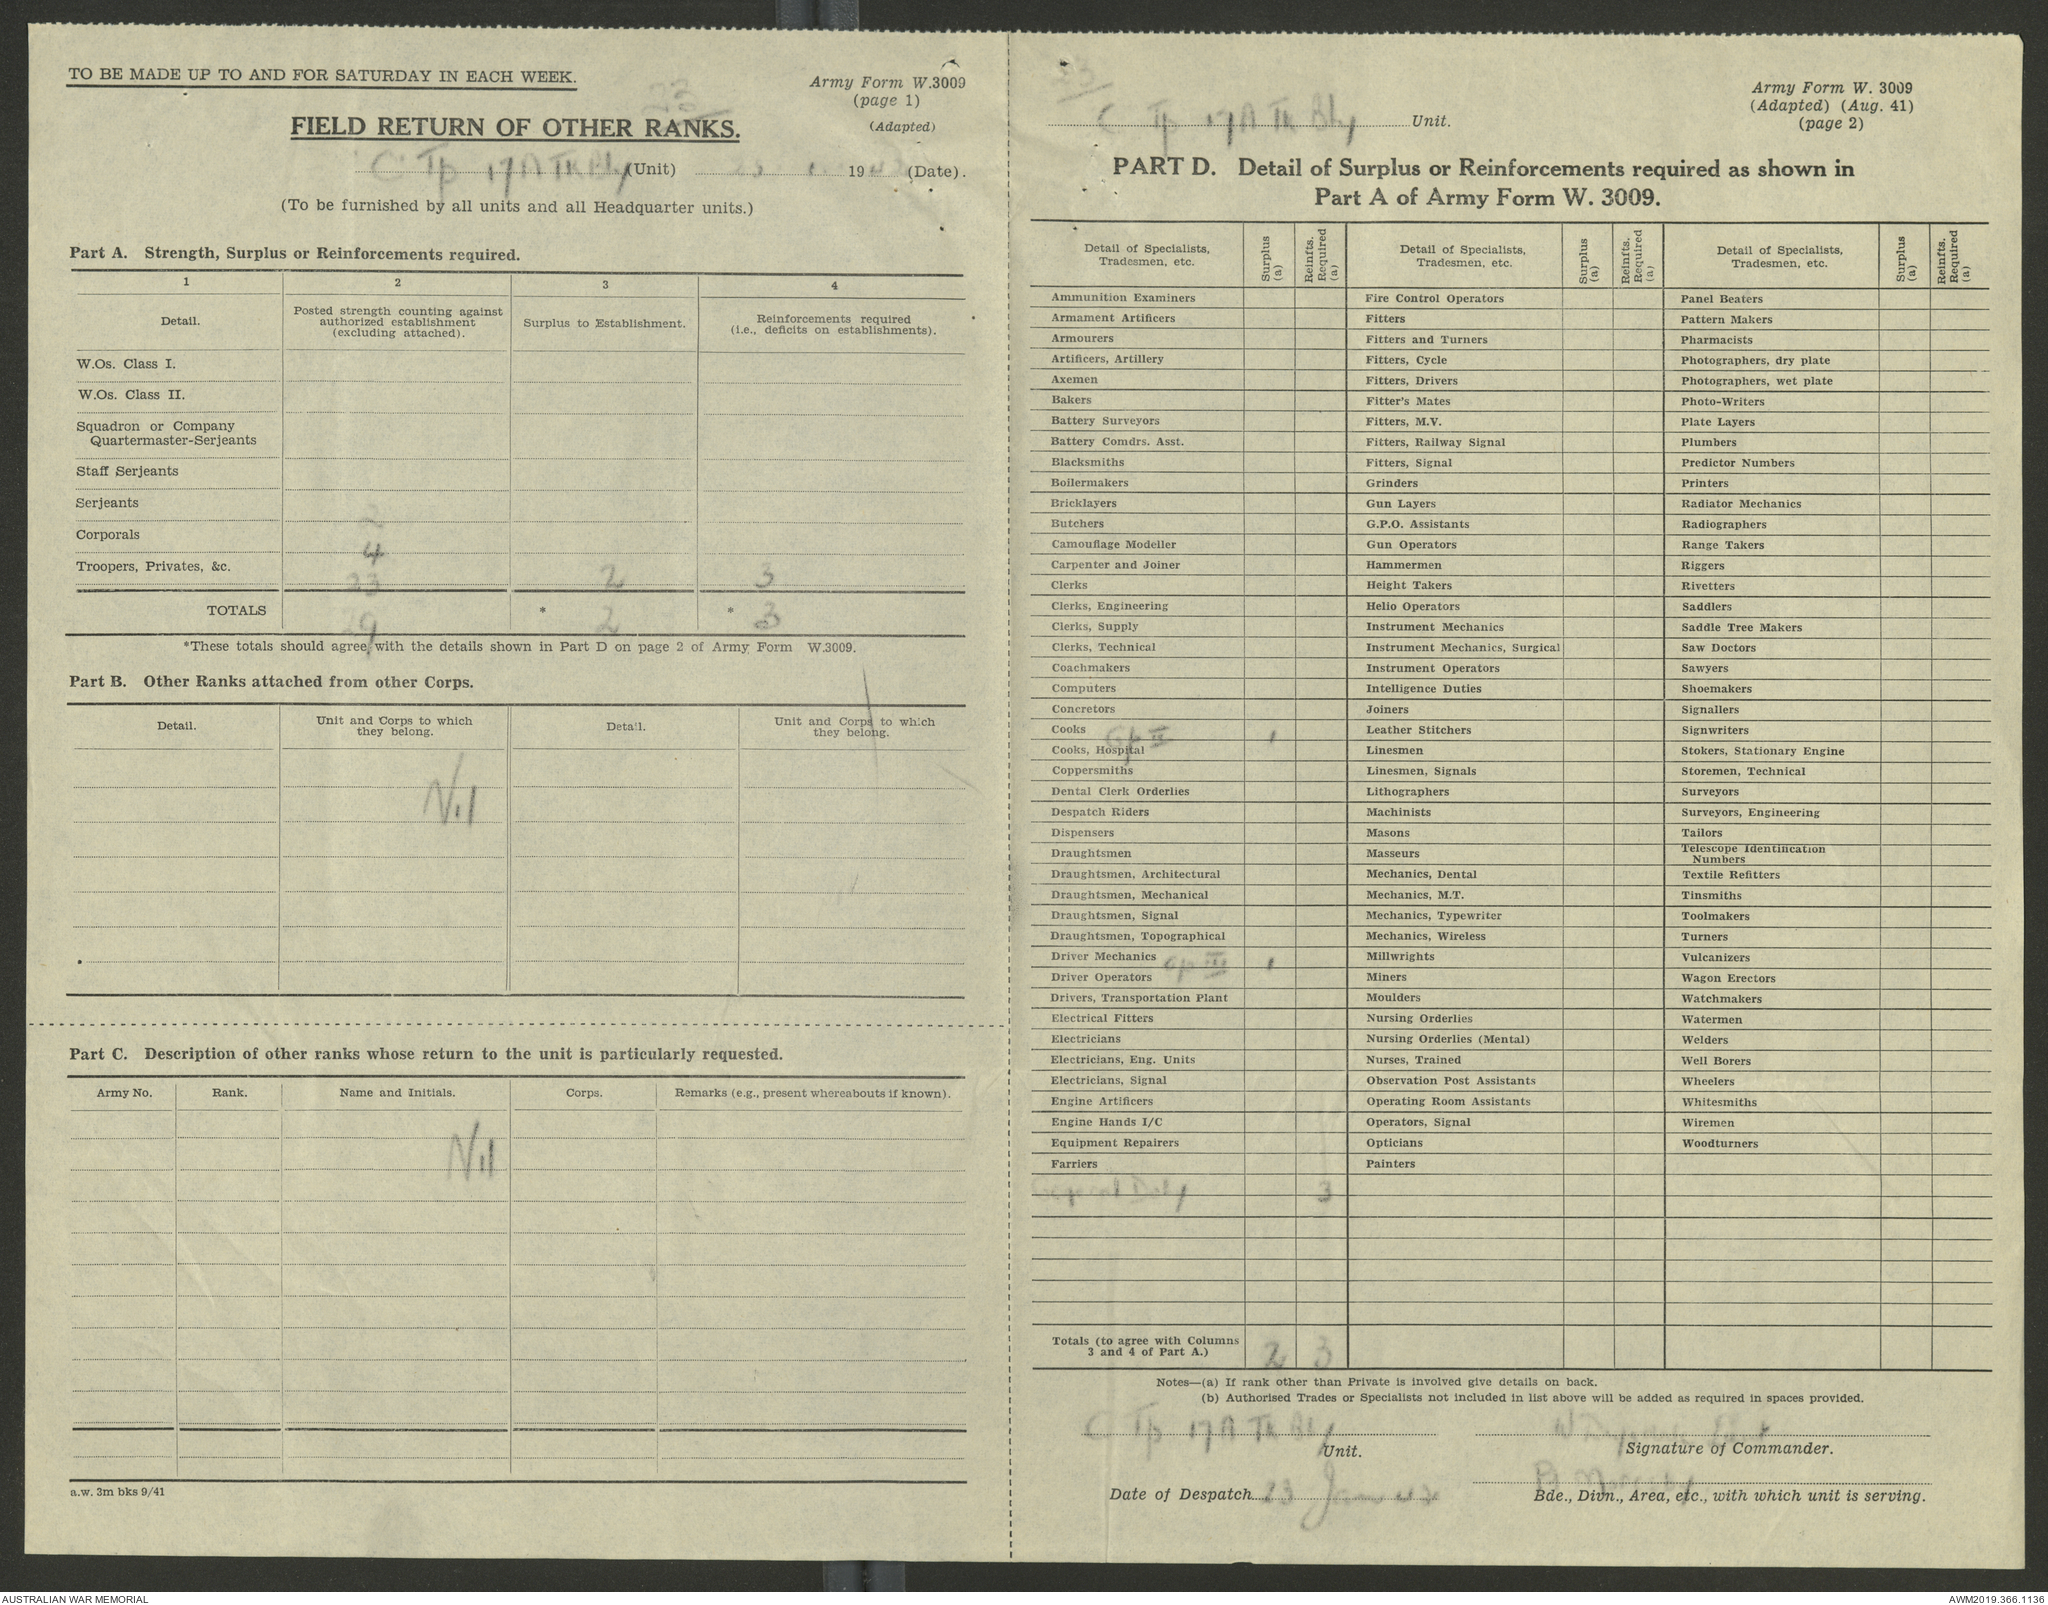 TO BE MADE UP TO AND FOR SATURDAY IN EACH WEEK.
Army Form W.3009
(page 1)
(Adapted)
23
FIELD RETURN OF OTHER RANKS.
C Tp 17 A Tk Bty (Unit) 23 1 19 (Date).
(To be furnished by all units and all Headquarter units.)
Part A. Strength, Surplus or Reinforcements required.
1 2 3 4
Detail. Posted strength counting against authorized establishment (excluding attached). Surplus to Establishment. Reinforcements required (i.e., deficits on establishments).
W.Os. Class I.
W.Os. Class II.
Squadron or Company
Quartermaster-Serjeants
Staff Serjeants
Serjeants 2
Corporals 4
Troopers, Privates, &c. 23 2 3
TOTALS 29 * 2 * 3
*These totals should agree with the details shown in Part D on page 2 of Army Form W.3009.
Part B. Other Ranks attached from other Corps.
Detail. Unit and Corps to which they belong. Detail. Unit and Corps to which they belong.
Nil
Part C. Description of other ranks whose return to the unit is particularly requested.
Army No. Rank. Name and Initials. Corps. Remarks (e.g., present whereabouts if known).
Nil
a.w. 3m bks 9/41
23
C Tp 17 A Tk Bty Unit.
Army Form W. 3009
(Adapted) (Aug. 41)
(page 2)
PART D. Detail of Surplus or Reinforcements required as shown in
Part A of Army Form W. 3009.
Detail of Specialists, Tradesmen, etc. Surplus (a) Reinfts. Required (a) Detail of Specialists, Tradesmen, etc. Surplus (a) Reinfts. Required (a) Detail of Specialists, Tradesmen, etc. Surplus (a) Reinfts. Required (a)
Ammunition Examiners Fire Control Operators Panel Beaters
Armament Artificers Fitters Pattern Makers
Armourers Fitters and Turners Pharmacists
Artificers, Artillery Fitters, Cycle Photographers, dry plate
Axemen Fitters, Drivers Photographers, wet plate
Bakers Fitter's Mates Photo-Writers
Battery Surveyors Fitters, M.V. Plate Layers
Battery Comdrs. Asst. Fitters, Railway Signal Plumbers
Blacksmiths Fitters, Signal Predictor Numbers
Boilermakers Grinders Printers
Bricklayers Gun Layers Radiator Mechanics
Butchers G.P.O. Assistants Radiographers
Camouflage Modeller Gun Operators Range Takers
Carpenter and Joiner Hammermen Riggers
Clerks Height Takers Rivetters
Clerks, Engineering Helio Operators Saddlers
Clerks, Supply Instrument Mechanics Saddle Tree Makers
Clerks, Technical Instrument Mechanics, Surgical Saw Doctors
Coachmakers Instrument Operators Sawyers
Computers Intelligence Duties Shoemakers
Concretors Joiners Signallers
Cooks Gp II 1 Leather Stitchers Signwriters
Cooks, Hospital Linesmen Stokers, Stationary Engine
Coppersmiths Linesmen, Signals Storemen, Technical
Dental Clerk Orderlies Lithographers Surveyors
Despatch Riders Machinists Surveyors, Engineering
Dispensers Masons Tailors
Draughtsmen Masseurs Telescope Identification Numbers
Draughtsmen, Architectural Mechanics, Dental Textile Refitters
Draughtsmen, Mechanical Mechanics, M.T. Tinsmiths
Draughtsmen, Signal Mechanics, Typewriter Toolmakers
Draughtsmen, Topographical Mechanics, Wireless Turners
Driver Mechanics Gp III 1 Millwrights Vulcanizers
Driver Operators Miners Wagon Erectors
Drivers, Transportation Plant Moulders Watchmakers
Electrical Fitters Nursing Orderlies Watermen
Electricians Nursing Orderlies (Mental) Welders
Electricians, Eng. Units Nurses, Trained Well Borers
Electricians, Signal Observation Post Assistants Wheelers
Engine Artificers Operating Room Assistants Whitesmiths
Engine Hands I/C Operators, Signal Wiremen
Equipment Repairers Opticians Woodturners
Farriers Painters
General Duty 3
Totals (to agree with Columns 3 and 4 of Part A.) 2 3
Notes—(a) If rank other than Private is involved give details on back.
(b) Authorised Trades or Specialists not included in list above will be added as required in spaces provided.
C Tp 17 A Tk Bty
Unit. Signature of Commander.
Date of Despatch 23 Jan
Bde., Divn., Area, etc., with which unit is serving.
AUSTRALIAN WAR MEMORIAL
AWM2019.366.1136